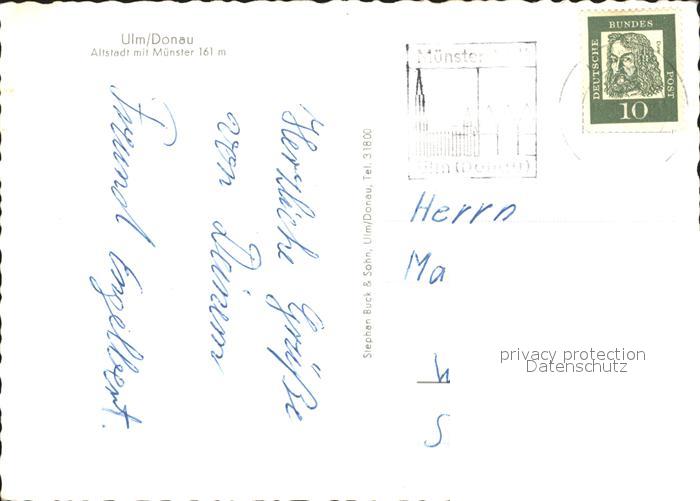 Ulm/Donau
Altstadt mit Münster 161 m
Herzliche Grüße
von Deinem
Freund Engelbert.
Stephan Buck & Sohn, Ulm/Donau, Tel. 31800
Münster
Ulm (Donau)
DEUTSCHE BUNDES POST
Dürer
10
Herrn
Ma
h
S
privacy protection
Datenschutz